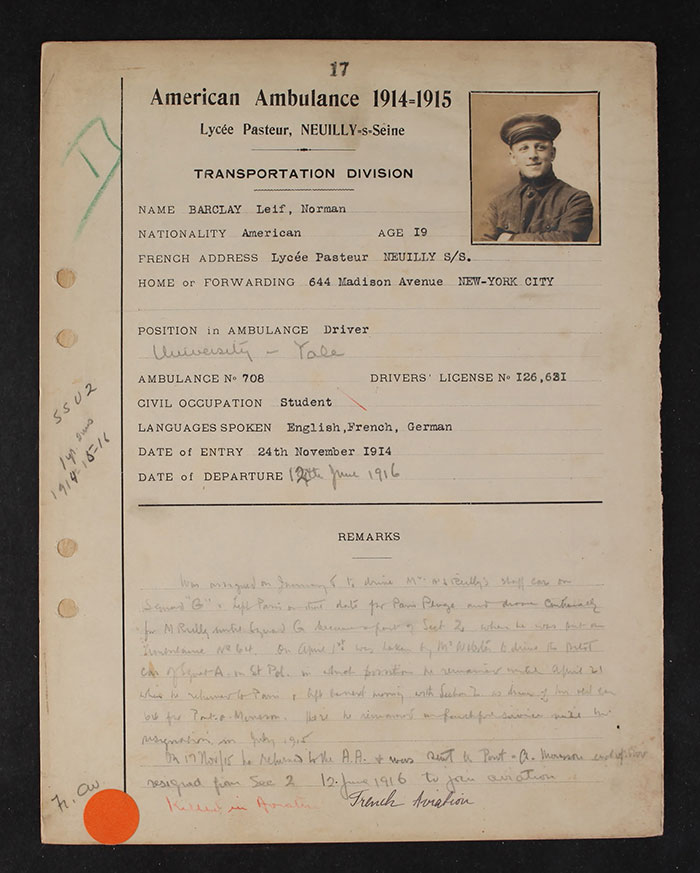 17
American Ambulance 1914=1915
Lycée Pasteur, NEUILLY=s=Seine
TRANSPORTATION DIVISION
NAME BARCLAY Leif, Norman
NATIONALITY American AGE I9
FRENCH ADDRESS Lycée Pasteur NEUILLY S/S.
HOME or FORWARDING 644 Madison Avenue NEW-YORK CITY
POSITION in AMBULANCE Driver
University - Yale
AMBULANCE No 708 DRIVERS' LICENSE No I26,631
CIVIL OCCUPATION Student
LANGUAGES SPOKEN English,French, German
DATE of ENTRY 24th November I9I4
DATE of DEPARTURE 12th June 1916
SSU 2
1914-15-16
REMARKS
Was assigned on January 8 to drive Mr staff car on
Squad "G". Left Paris on that date for Paris Plage and drove
for M Reilly until Squad G became a part of Sect 2, when he was put on
Ambulance No 64. On April 1st was taken by Mr to drive the
car of Squad A. in St Pol. in position he remained until April 21
when he returned to Paris, & left morning with Section 2. as driver of his old car
64 for Pont-a-Mousson. Here he remained in faithful service until his
resignation in July 1915
On 17 Nov/15 he returned to the A.A. & was sent to Pont-A. Mousson
resigned from Sec 2 12 June 1916 to join aviation.
Fr. Av.
Killed in Aviation
French Aviation